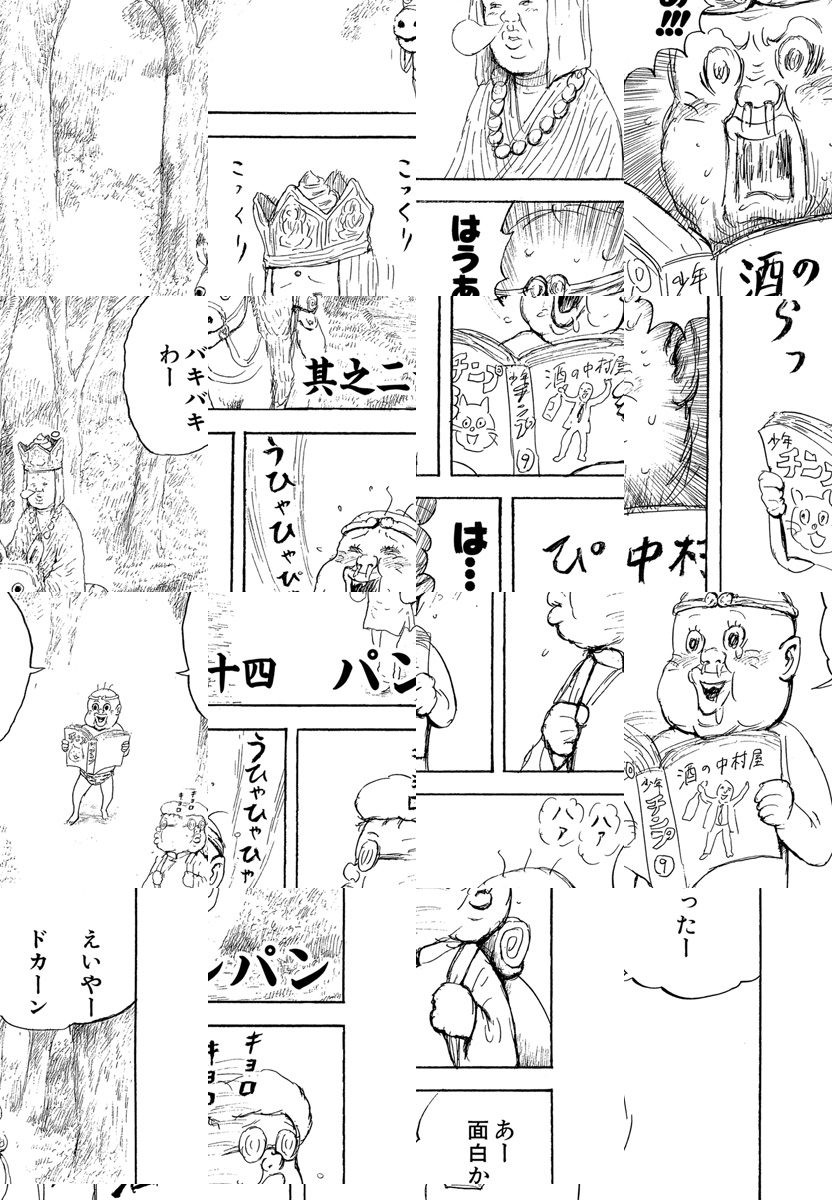 こっくり
こっくり
はうあ
あ!!!
少年
酒の
らっ
バキバキ
わー
其之二
うひゃひゃひゃ
チンプ
少年チンプ
9
酒の中村屋
は…
ぴ
中村
少年
チンプ
十四 パン
うひゃひゃひゃ
キョロ
キョロ
ハァ
ハァ
酒の中村屋
少年チンプ
9
えいやー
ドカーン
ンパン
キョロ
キョロ
あー
面白か
ったー